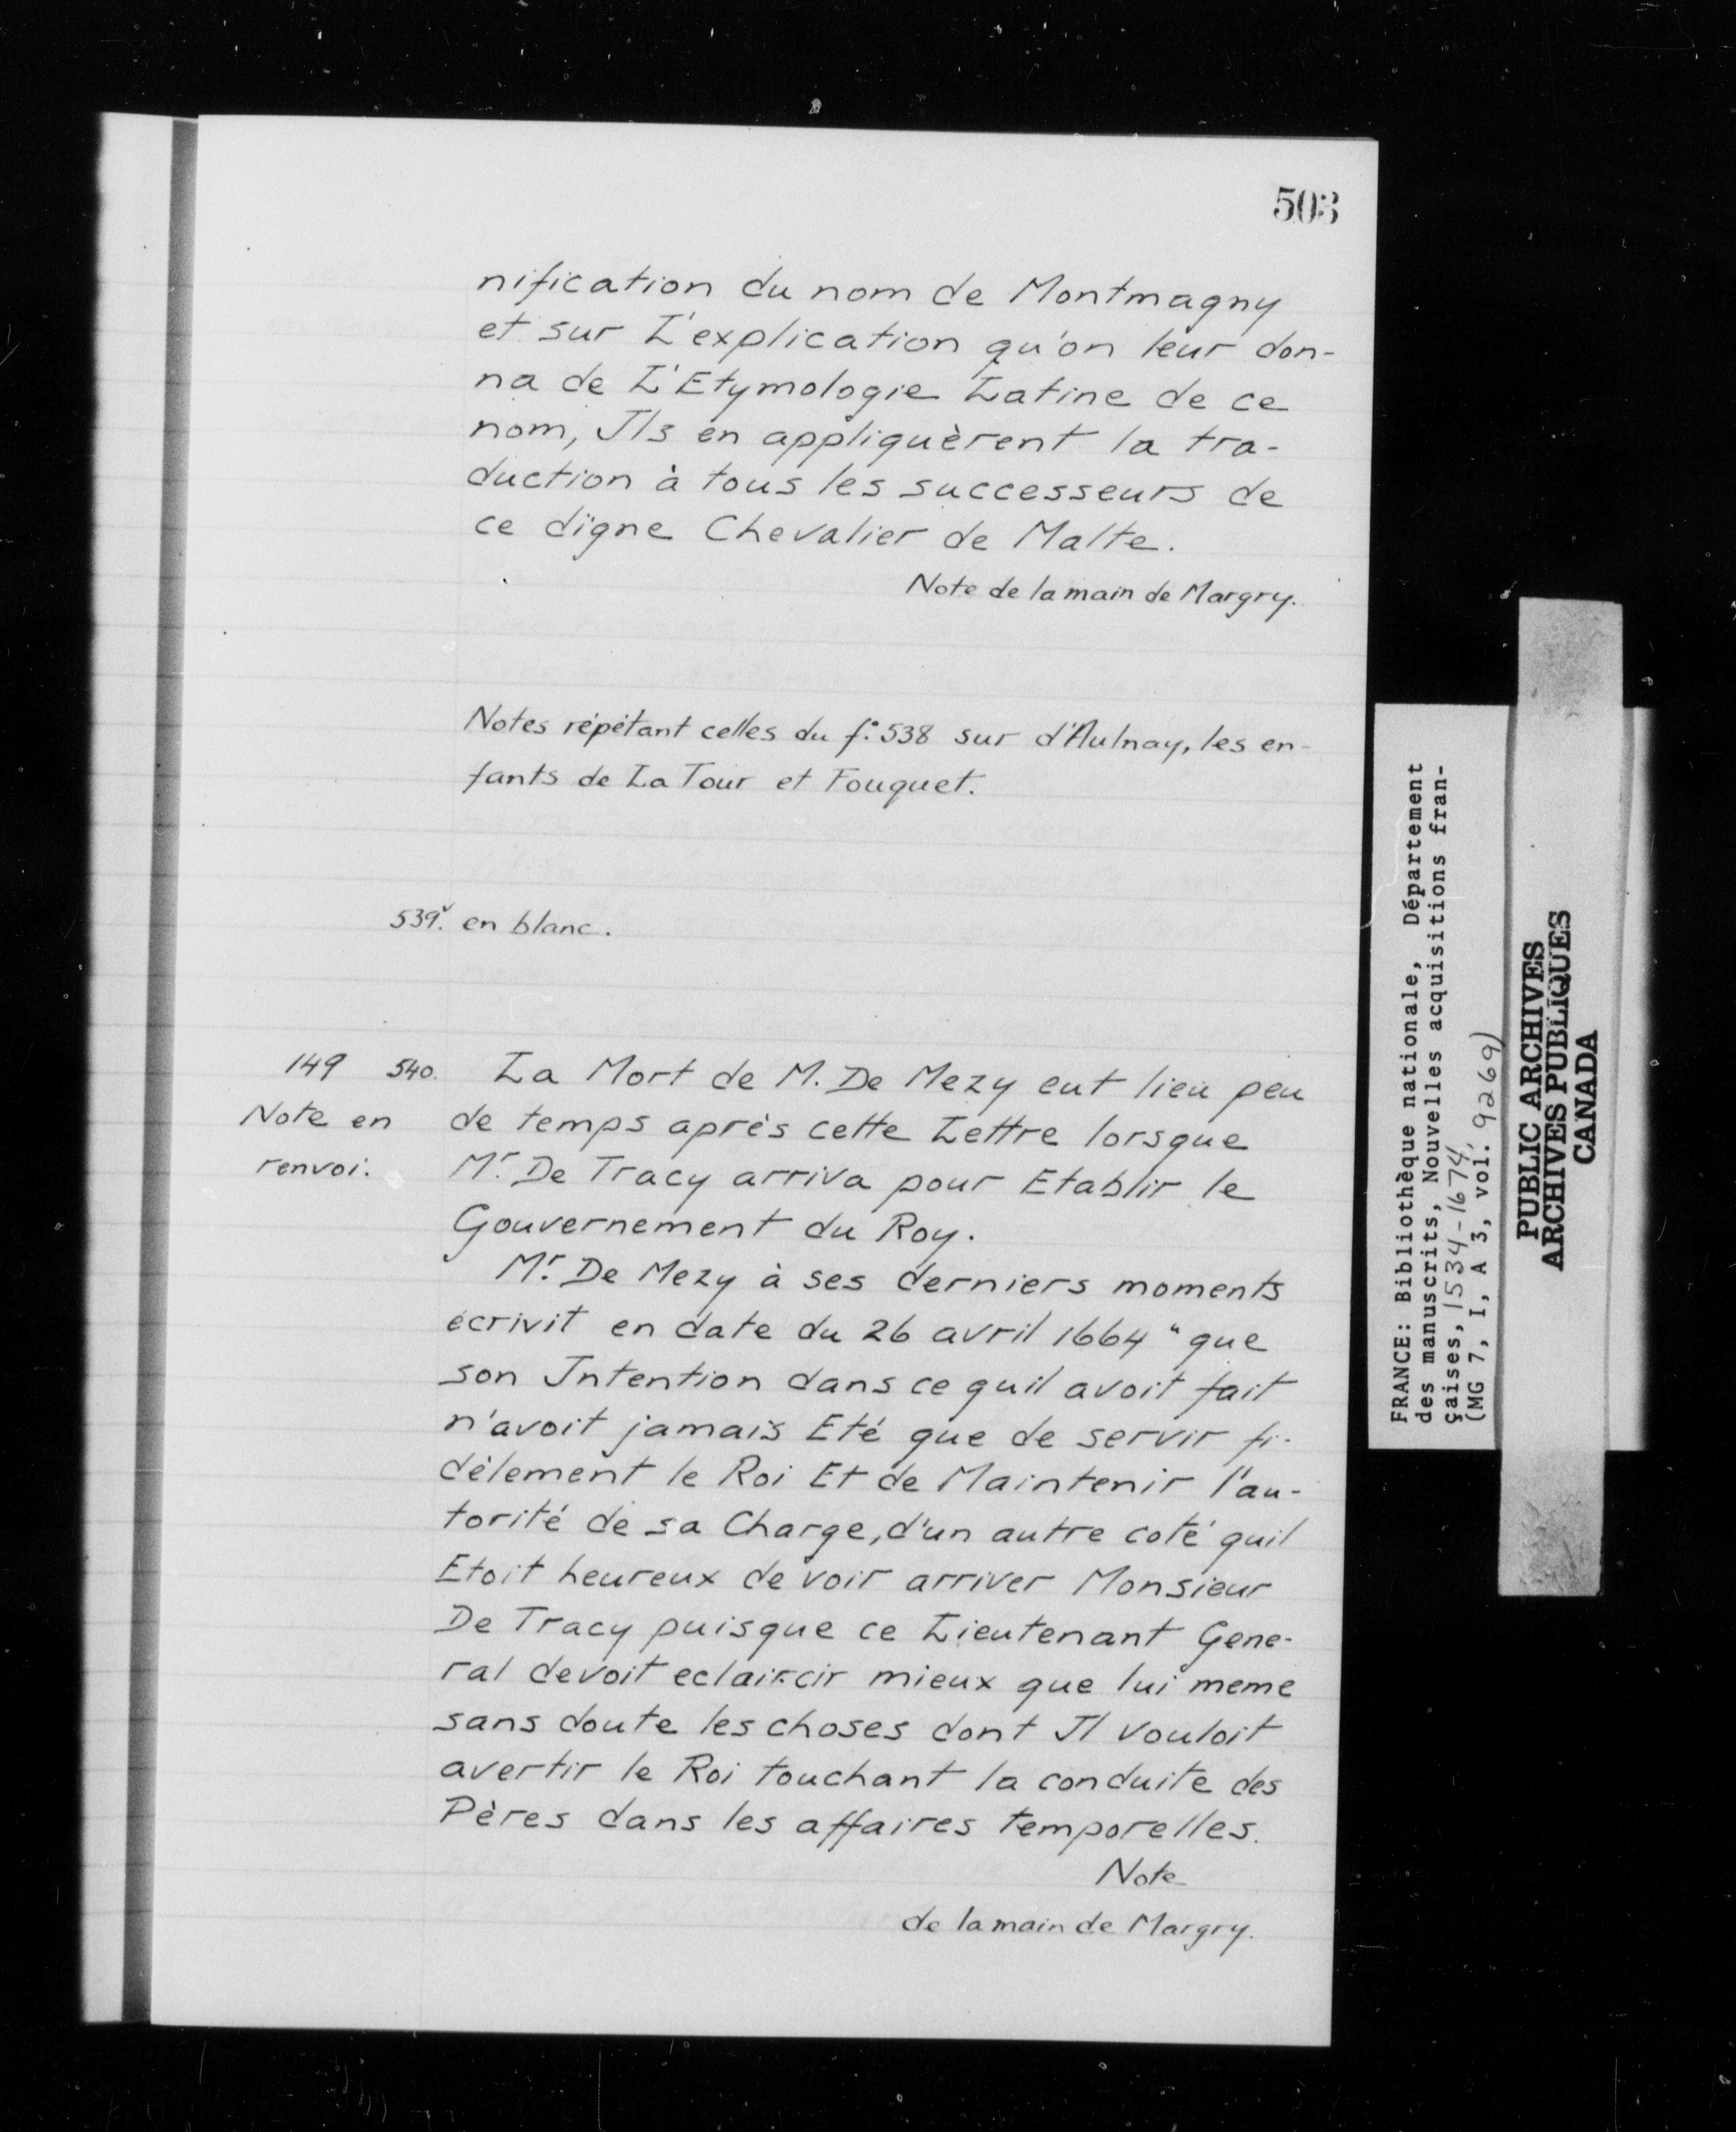 503
nification du nom de Montmagny
et sur L'explication qu'on leur don-
na de L'Etymologie Latine de ce
nom, Ils en appliquèrent la tra-
duction à tous les successeurs de
ce digne Chevalier de Malte.
Note de la main de Margry.
Notes répétant celles du f.° 538 sur d'Aulnay, les en-
fants de La Tour et Fouquet.
539.v en blanc.
149 540. La Mort de M. De Mezy eut lieu peu
Note en de temps après cette Lettre lorsque
renvoi. Mr. De Tracy arriva pour Etablir le
Gouvernement du Roy.
Mr. De Mezy à ses derniers moments
écrivit en date du 26 avril 1664 "que
son Intention dans ce quil avoit fait
n'avoit jamais Eté que de servir fi-
dèlement le Roi Et de Maintenir l'au-
torité de sa Charge, d'un autre coté quil
Etoit heureux de voir arriver Monsieur
De Tracy puisque ce Lieutenant Gene-
ral devoit eclaircir mieux que lui meme
sans doute les choses dont Il vouloit
avertir le Roi touchant la conduite des
Pères dans les affaires temporelles.
Note
de la main de Margry.
FRANCE: Bibliothèque nationale, Département
des manuscrits, Nouvelles acquisitions fran-
çaises, 1534-1674,
(MG 7, I, A 3, vol. 9269)
PUBLIC ARCHIVES
ARCHIVES PUBLIQUES
CANADA